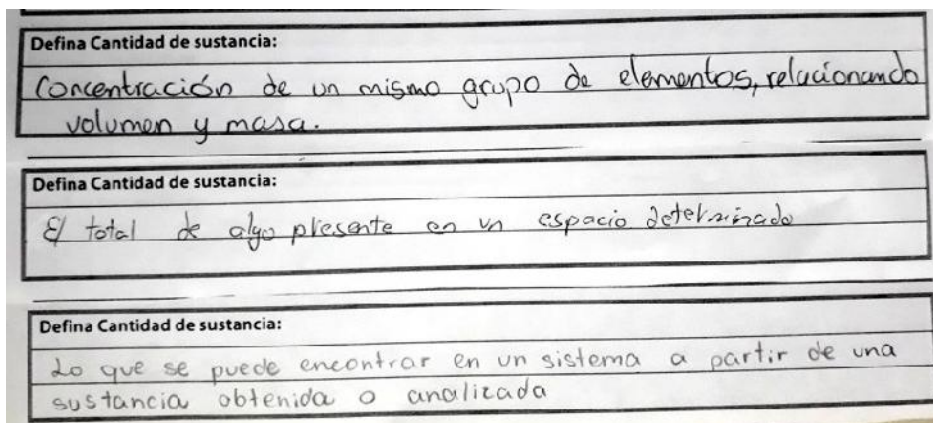 Defina Cantidad de sustancia:
Concentración de un mismo grupo de elementos, relacionando
volumen y masa.
Defina Cantidad de sustancia:
El total de algo presente en un espacio determinado
Defina Cantidad de sustancia:
Lo que se puede encontrar en un sistema a partir de una
sustancia obtenida o analizada